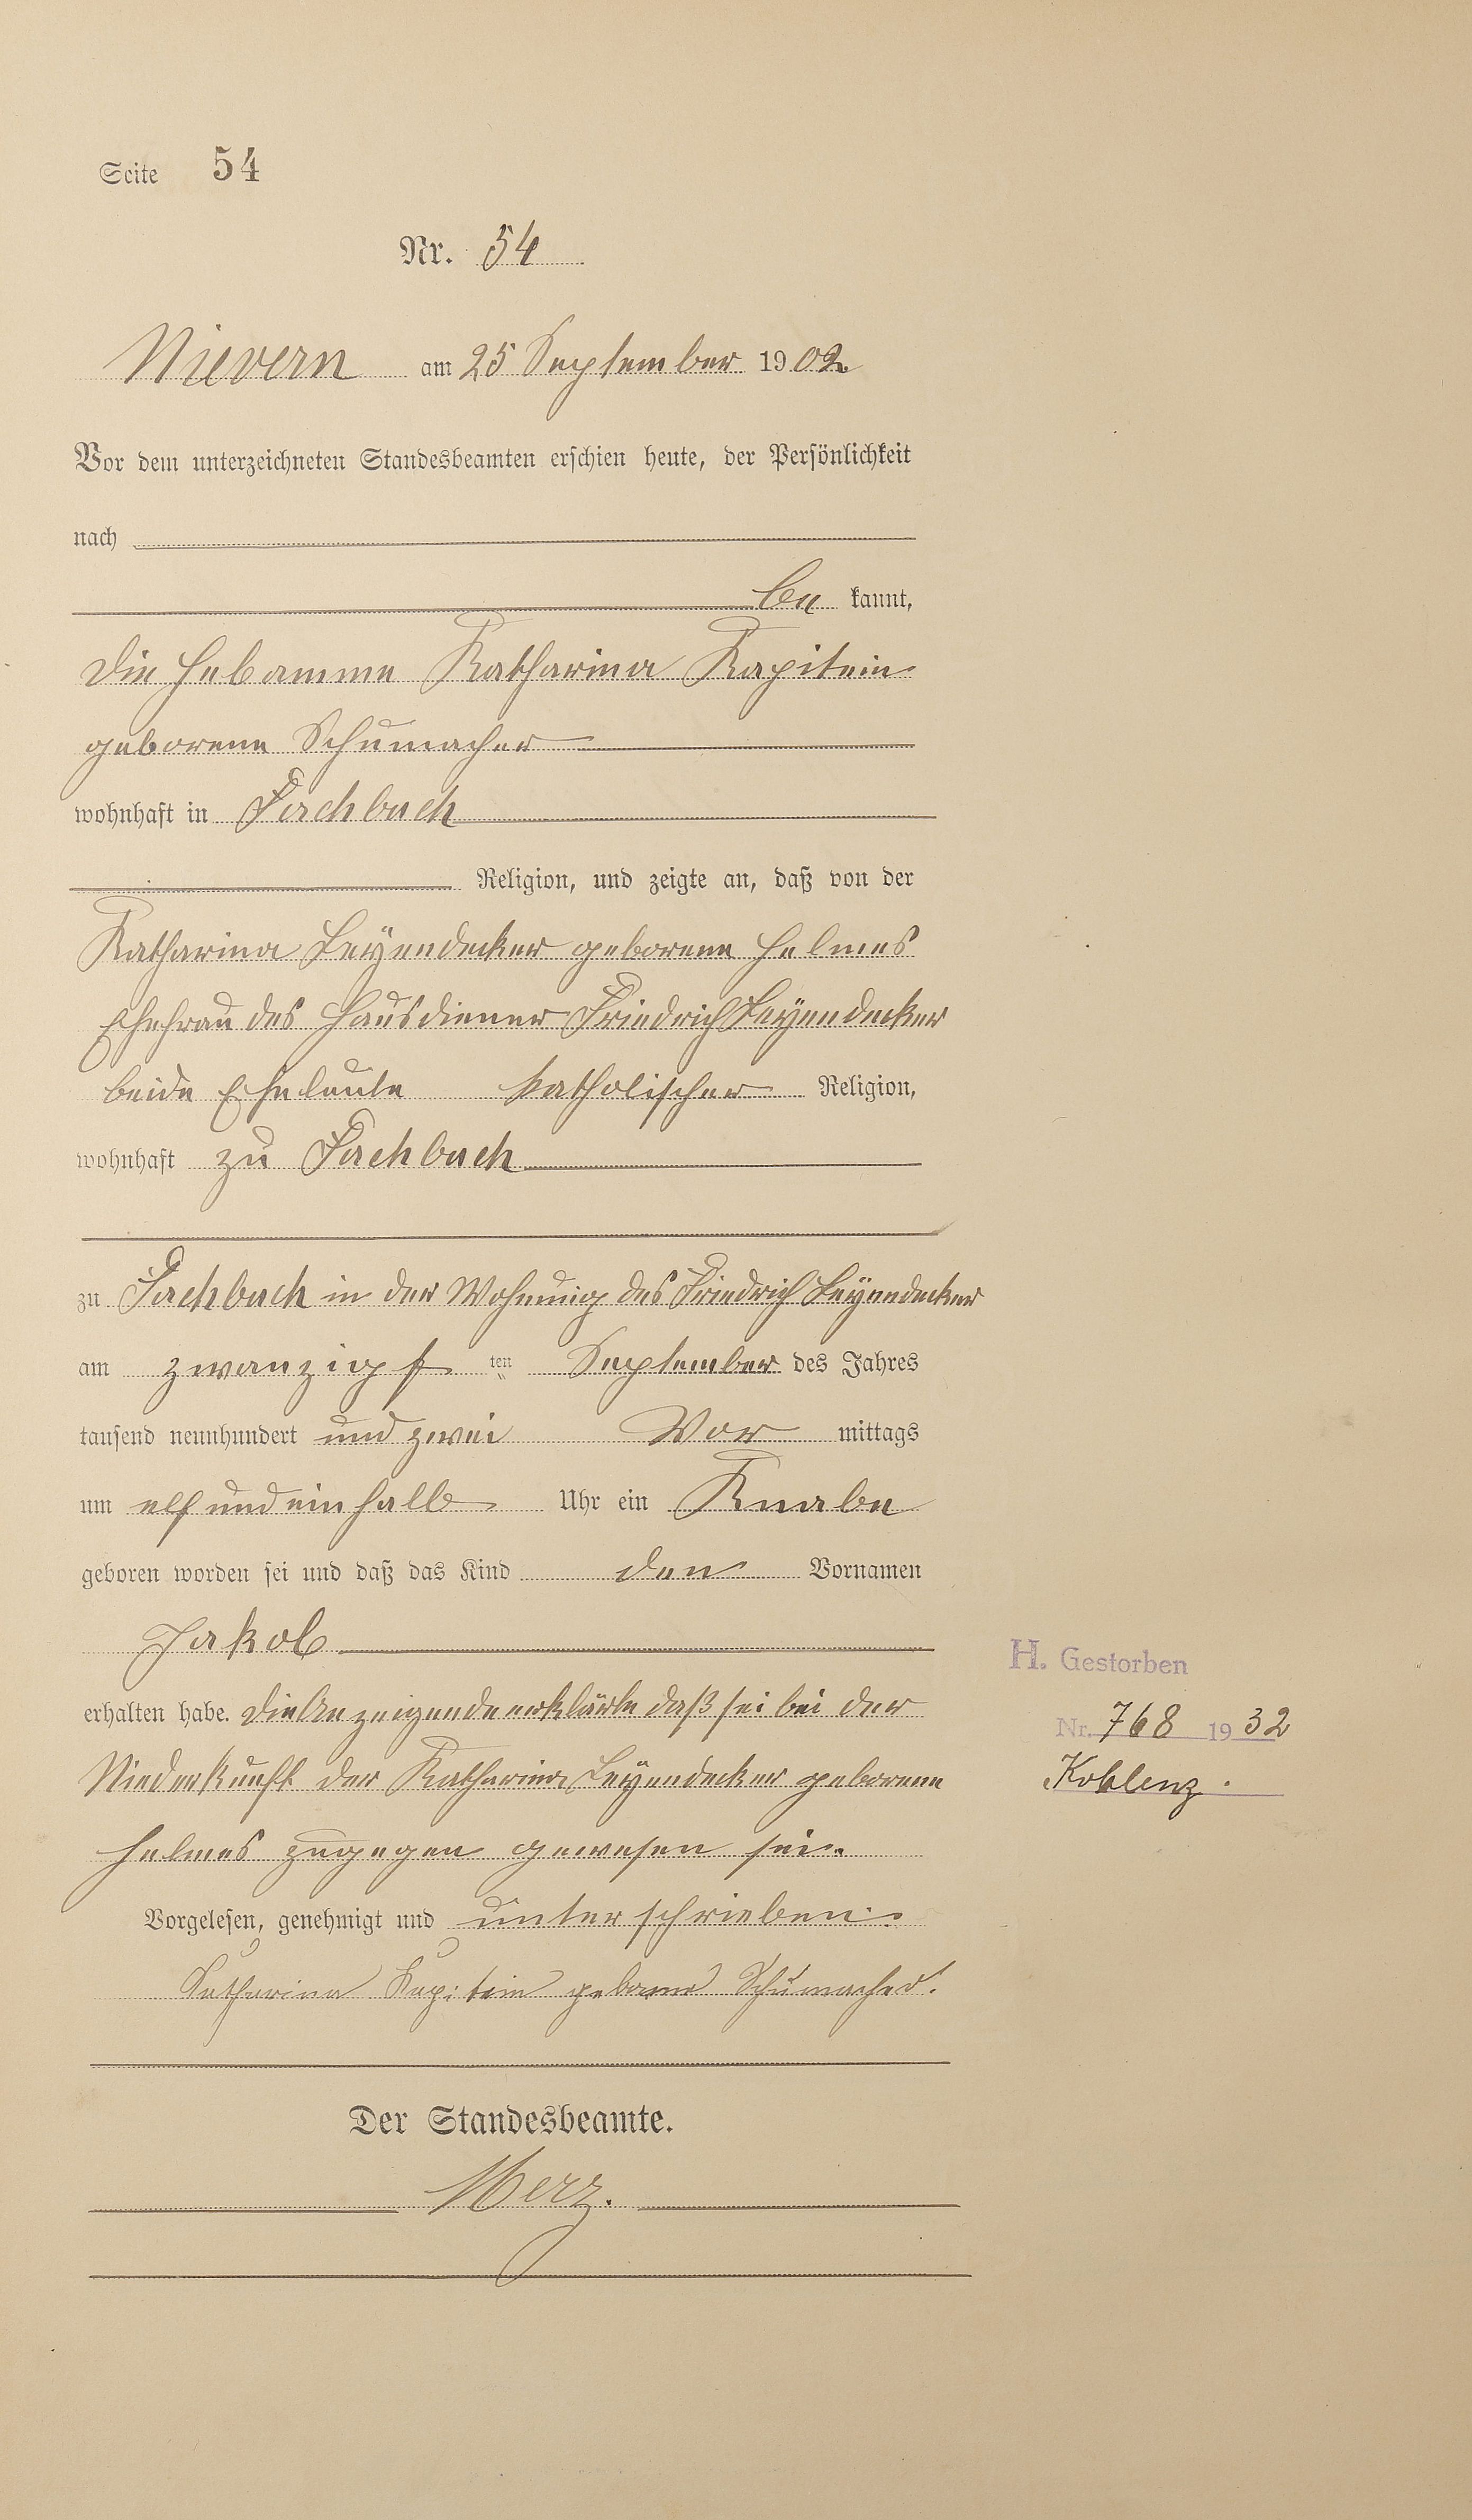 Seite 54
Nr. 54
Nievern am 25 September 1902
Vor dem unterzeichneten Standesbeamten erschien heute, der Persönlichkeit
nach
be kannt,
die Hebamme Katharina Kapitein
geborene Schumacher
wohnhaft in Fachbach
Religion, und zeigte an, daß von der
Katharina Leyendecker geborene Helmes
Ehefrau des Hausdiener Friedrich Leyendecker
beide Eheleute katholischer Religion,
wohnhaft zu Fachbach
zu Fachbach in der Wohnung des Friedrich Leyendecker
am zwanzigs ten September des Jahres
tausend neunhundert und zwei Vor mittags
um elf und ein halb Uhr ein Knabe
geboren worden sei und daß das Kind den Vornamen
Jakob
erhalten habe. Die Anzeigende erklärte daß sei bei der
Niederkunft der Katharina Leyendecker geborene
Helmes zugegen gewesen sei.
Vorgelesen, genehmigt und unterschrieben.
Katharina Kapitein geborne Schumacher.
Der Standesbeamte.
Merz.
H. Gestorben
Nr. 768 1932
Koblenz.